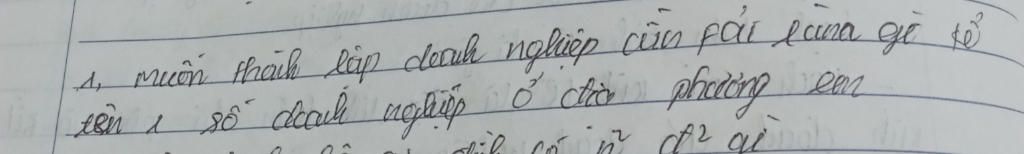 1, muốn thành lập doanh nghiệp cần fải làm gì kể
tên 1 số doanh nghiệp ở địa phương em
có n² đ² gì